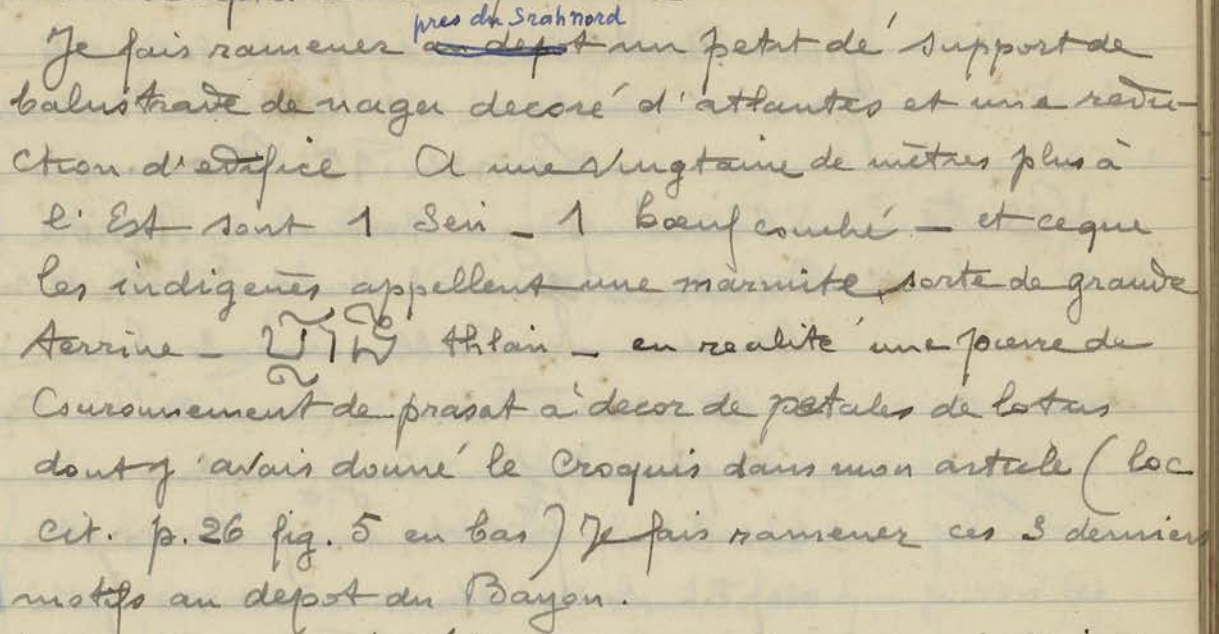 près du Srah nord
Je fais ramener au depot un petit dé support de
balustrade de naga decoré d'atlantes et une rédu-
ction d'edifice A une vingtaine de mètres plus à
l'Est sont 1 Sein _ 1 bœuf couché _ et ce que
les indigenes appellent une marmite, sorte de grande
terrine _ thlan _ en realité une pierre de
Couronnement de prasat à decor de petales de lotus
dont j'avais donné le Croquis dans mon article (loc
cit. p. 26 fig. 5 en bas) Je fais ramener ces 3 derniers
motifs au depot du Bayon.